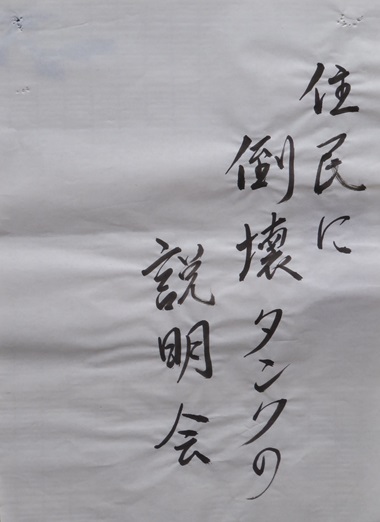 住民に
倒壊タンクの
説明会